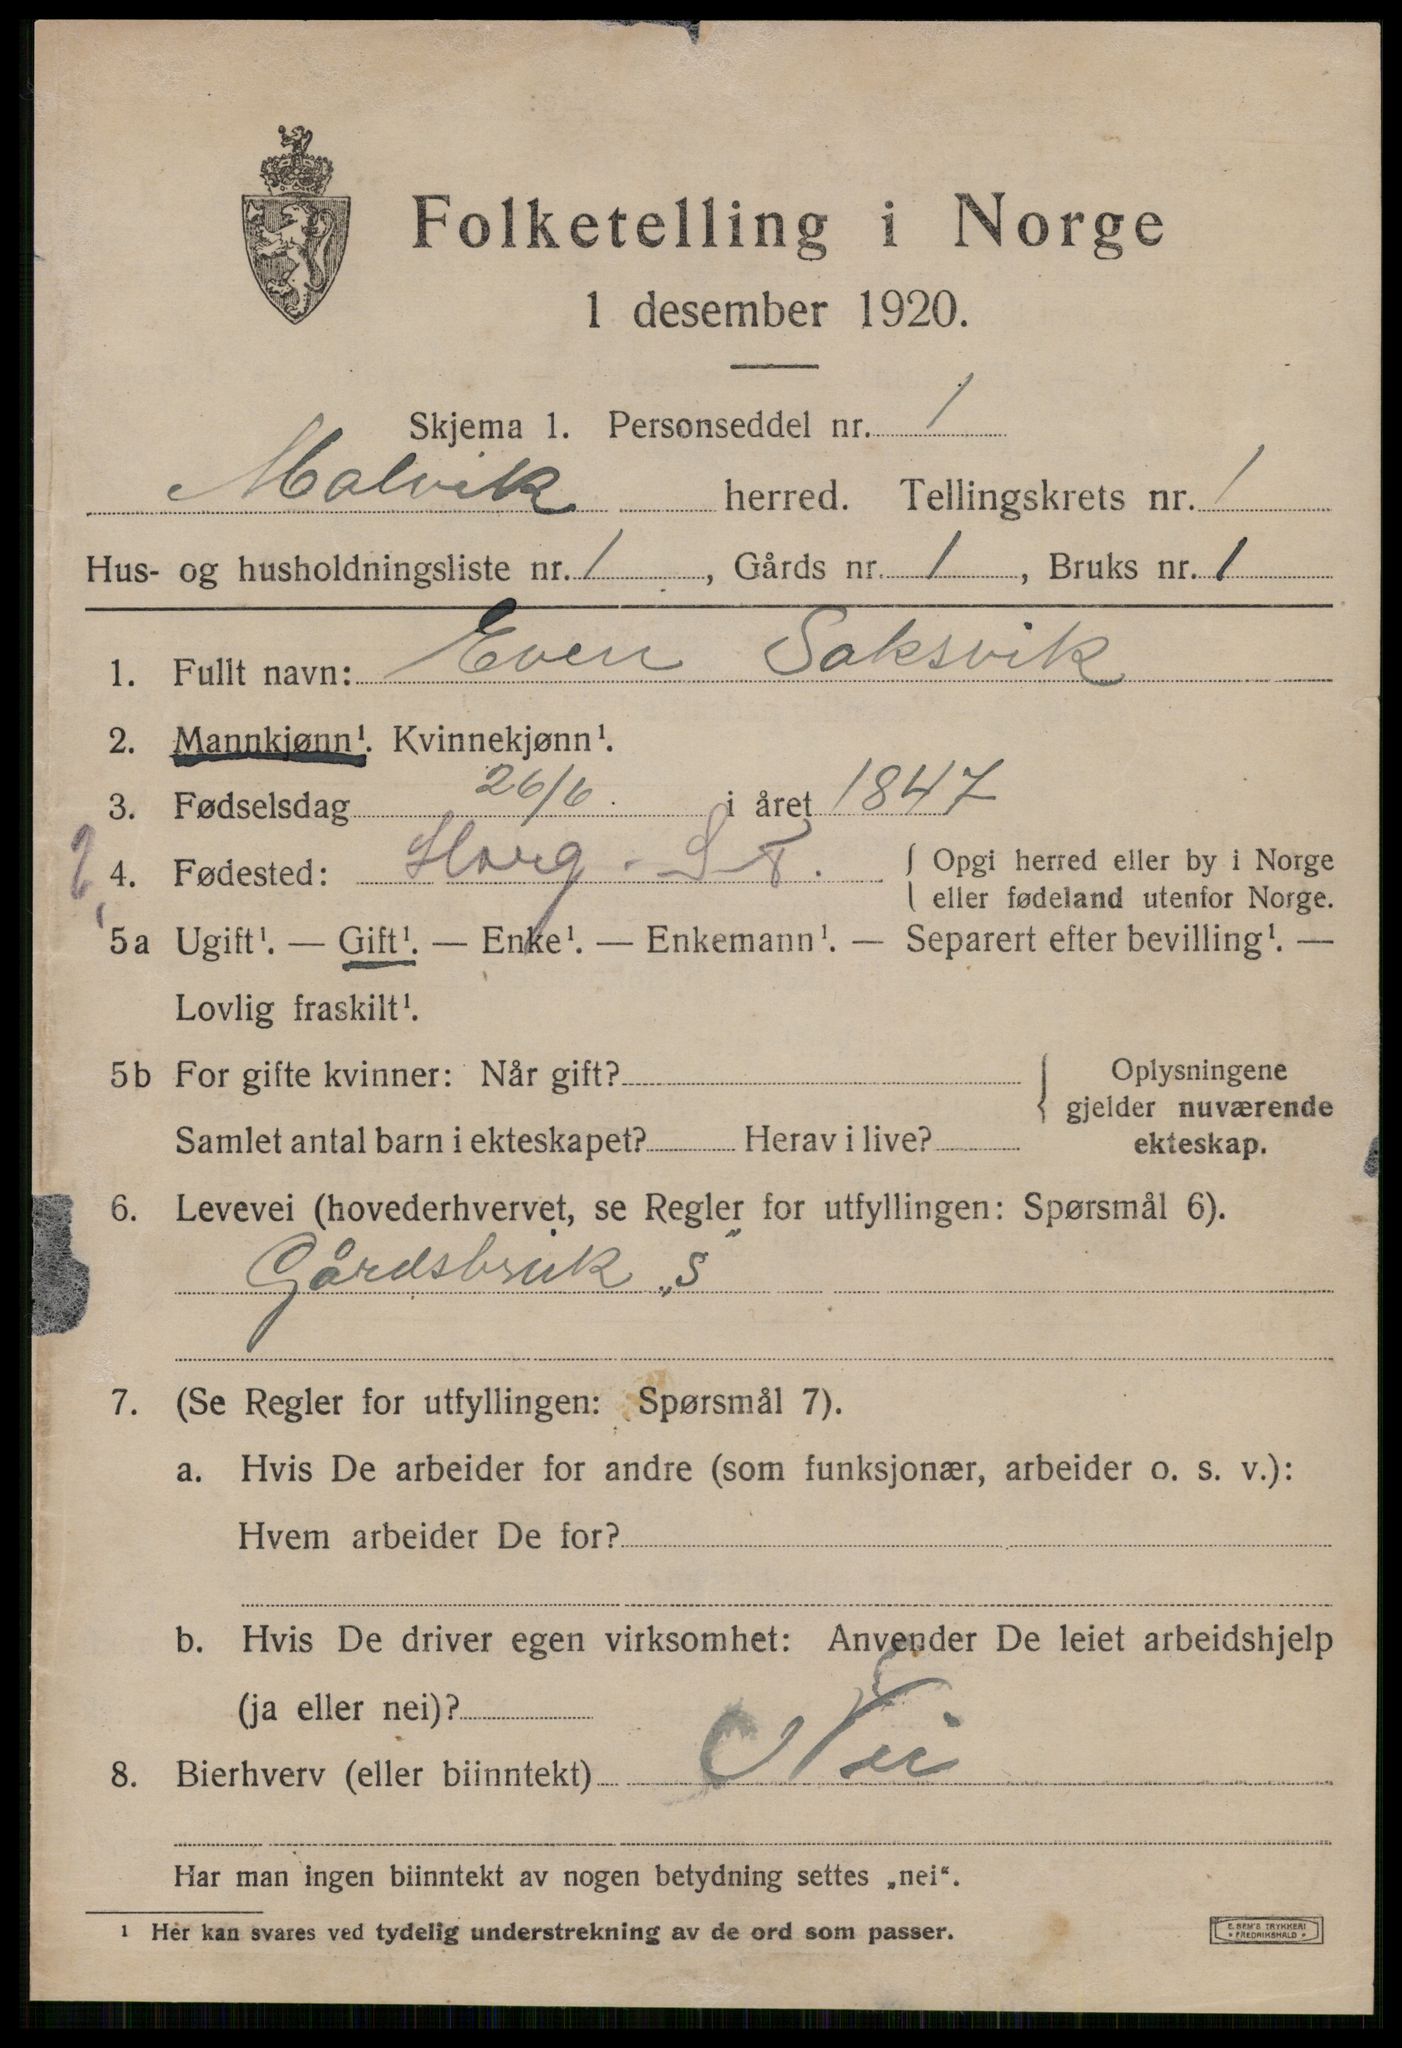 Folketelling i Norge
1 desember 1920.
Skjema 1. Personseddel nr. 1
Malvik herred. Tellingskrets nr. 1
Hus- og husholdningsliste nr. 1, Gårds nr. 1, Bruks nr. 1
1. Fullt navn: Even Saksvik
2. Mannkjønn¹. Kvinnekjønn¹.
3. Fødselsdag 26/6. i året 1847
4. Fødested: Horg. S. T. { Opgi herred eller by i Norge
eller fødeland utenfor Norge.
5a Ugift¹. — Gift¹. — Enke¹. — Enkemann¹. — Separert efter bevilling¹. —
Lovlig fraskilt¹.
5b For gifte kvinner: Når gift? { Oplysningene
gjelder nuværende
Samlet antal barn i ekteskapet? Herav i live? ekteskap.
6. Levevei (hovederhvervet, se Regler for utfyllingen: Spørsmål 6).
Gårdsbruk „S"
7. (Se Regler for utfyllingen: Spørsmål 7).
a. Hvis De arbeider for andre (som funksjonær, arbeider o. s. v.):
Hvem arbeider De for?
b. Hvis De driver egen virksomhet: Anvender De leiet arbeidshjelp
(ja eller nei)?
8. Bierhverv (eller biinntekt) Nei
Har man ingen biinntekt av nogen betydning settes „nei“.
¹ Her kan svares ved tydelig understrekning av de ord som passer.
E. SEM'S TRYKKERI
* FREDRIKSHALD *